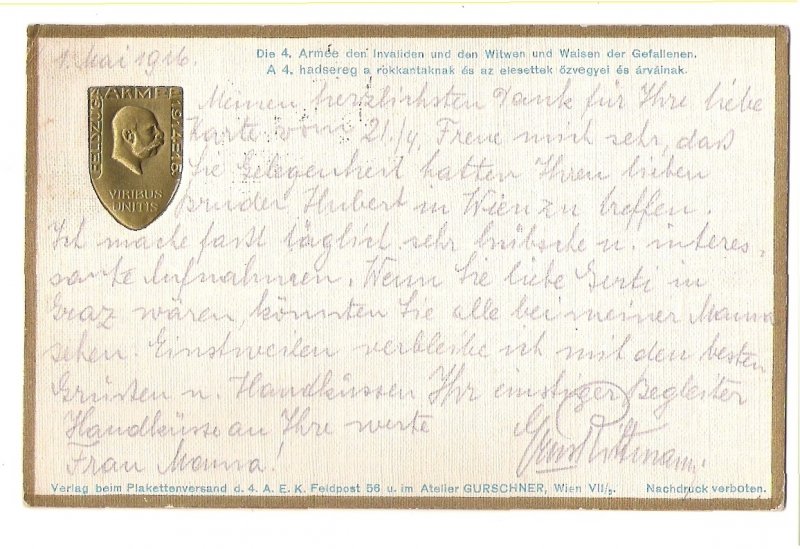 1. Mai 1916.
Die 4. Armee den Invaliden und den Witwen und Waisen der Gefallenen.
A 4. hadsereg a rokkantaknak és az elesettek özvegyei és árváinak.
FELDZUG ARMEE 1914–15
VIRIBUS
UNITIS
Meinen herzlichsten Dank für Ihre liebe
Karte vom 21./4. Freue mich sehr, daß
Sie Gelegenheit hatten Ihren lieben
Bruder Hubert in Wien zu treffen.
Ich mache fast täglich sehr hübsche u. interes-
sante Aufnahmen. Wenn Sie liebe Gerti in
Graz wären, könnten Sie alle bei meiner Mama
sehen. Einstweilen verbleibe ich mit den besten
Grüssen u. Handküssen Ihr einstiger Begleiter
Handküsse an Ihre werte
Frau Mama!
Verlag beim Plakettenversand d. 4. A. E. K. Feldpost 56 u. im Atelier GURSCHNER, Wien VII/2. Nachdruck verboten.